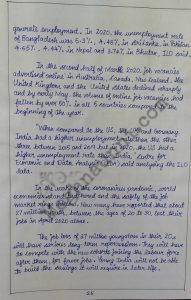 generate employment. In 2020, the unemployment rate
of Bangladesh was 5.3%, 4.48% in Sri Lanka, in Pakistan
4.65%, 4.44% in Nepal and 3.74% in Bhutan, ILO said.
In the second half of March 2020, job vacancies
advertised online in Australia, Canada, New Zealand, the
United Kingdom and the United States declined sharply
and by early May, the volumes of online job vacancies had
fallen by over 50% in all 5 countries compared to the
beginning of the year.
When compared to the US, the UK and Germany,
India had a higher unemployment rate than the other
three between 2015 and 2019 but in 2020, the US had a
higher unemployment rate than India, Centre for
Economic and Data Analysis (CEDA) said analysing the ILO
data.
In the wake of the coronavirus pandemic, world
and the safety of the job
market
27 million youth, between the ages of 20 to 30, lost their
jobs in April 2020 alone.
The job loss of 27 million youngsters in their 20s
will have serious long term repercussions. They will have
to compete with the new cohorts joining the labour force
after them, for fewer jobs. Young India will not be able
to build the savings it will require in later life.
25